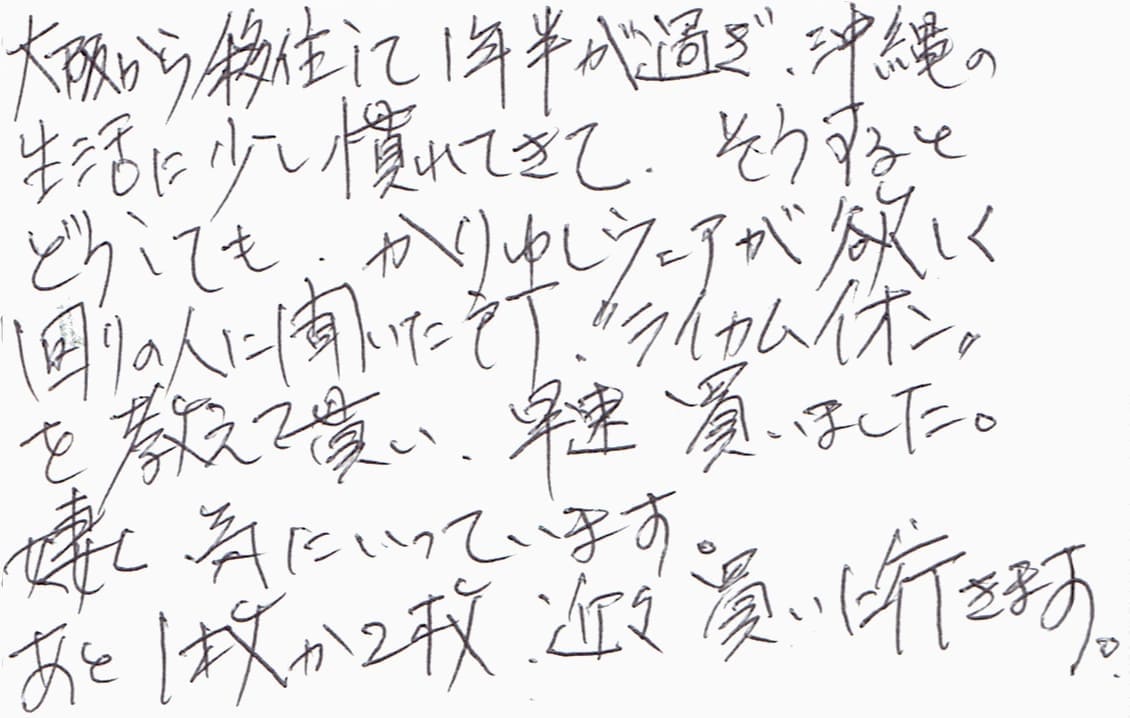 大阪から移住して1年半が過ぎ、沖縄の
生活に少し慣れてきて、そうすると
どうしても、かりゆしウェアが欲しく
回りの人に聞いた所、"ライカムイオン"
を教えて貰い、早速買いました。
凄く気にいっています。
あと1枚か2枚、近々買いに行きます。